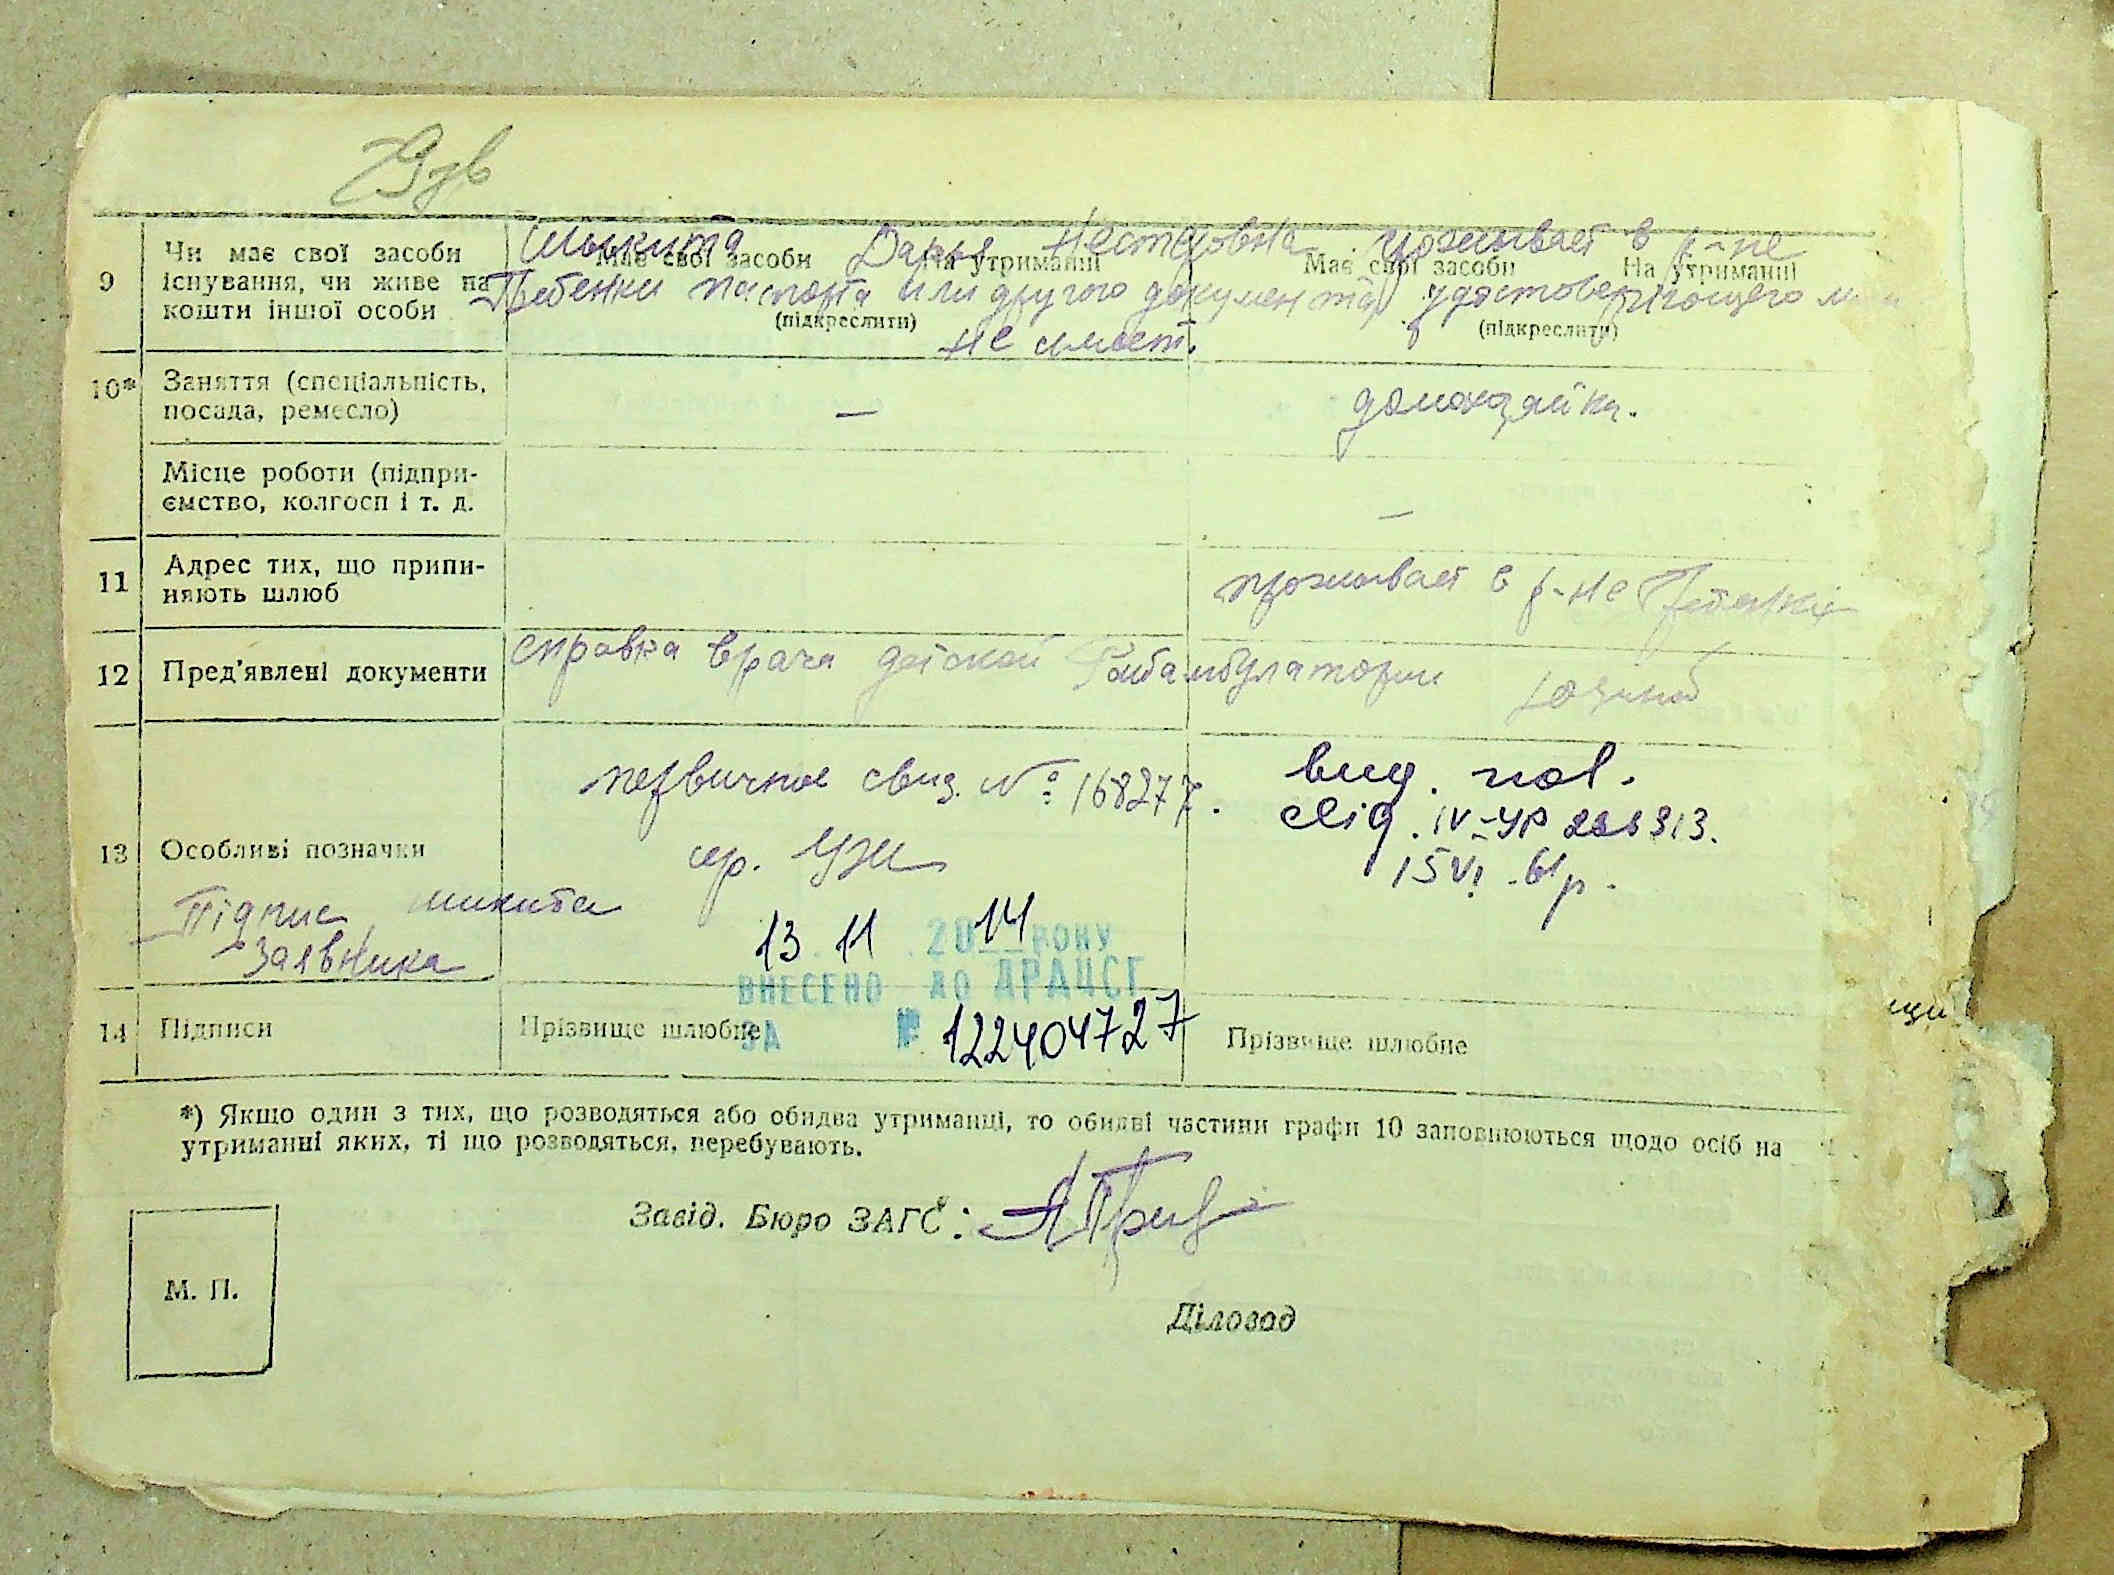 79 зв
9 Чи має свої засоби існування, чи живе на кошти іншої особи
Має свої засоби На утриманні
(підкреслити)
Має свої засоби На утриманні
(підкреслити)
Микита Дарья Нестеровна проживает в р-не
Гребенки паспорта или другого документа удостоверяющего
не имеет.
10* Заняття (спеціальність, посада, ремесло)
—
домохозяйка.
Місце роботи (підприємство, колгосп і т. д.
—
11 Адрес тих, що припиняють шлюб
проживает в р-не Гребенки
12 Пред'явлені документи
справка врача детской амбулатории
13 Особливі позначки
первичное свид. № 168277.
ср. Уж
вид. пов.
свід. IV-УР
15 VI 61 р.
Підпис Микита
Заявника
13.11.2014 РОКУ
ВНЕСЕНО ДО ДРАЦСГ
ЗА № 122404727
14 Підписи
Прізвище шлюбне
Прізвище шлюбне
*) Якщо один з тих, що розводяться або обидва утриманці, то обидві частини графи 10 заповнюються щодо осіб на
утриманні яких, ті що розводяться, перебувають.
Завід. Бюро ЗАГС:
М. П.
Діловод